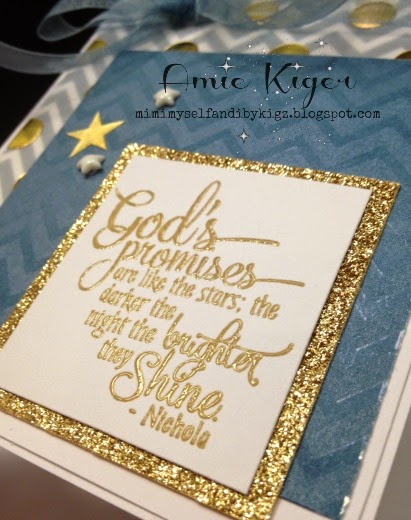 Amie Kiger
mimimyselfandibykigz.blogspot.com
God's
promises
are like the stars; the
darker the
night the brighter
they
Shine.
- Nichola